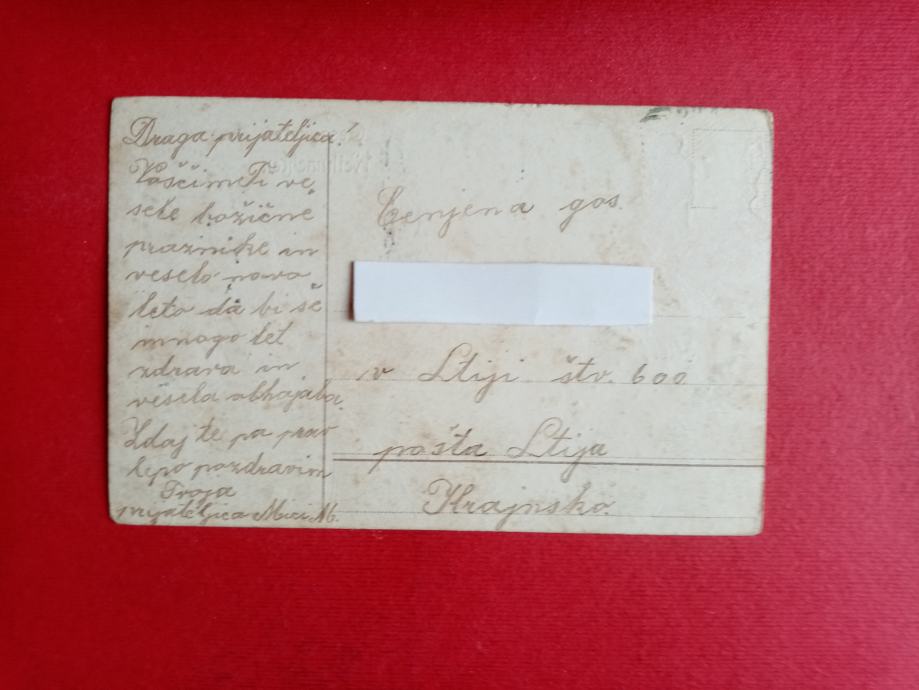 Draga prijateljica!
Voščim Ti ve,
sele božične
praznicke in
veselo novo
leto da bi še
mnogo let
zdrava in
vesela obhajala.
Zdaj te pa prav
lepo pozdravim
Tvoja
prijateljica Mici M.
Cenjena gos.
v Litiji štv. 600
pošta Litija
Krajnsko.